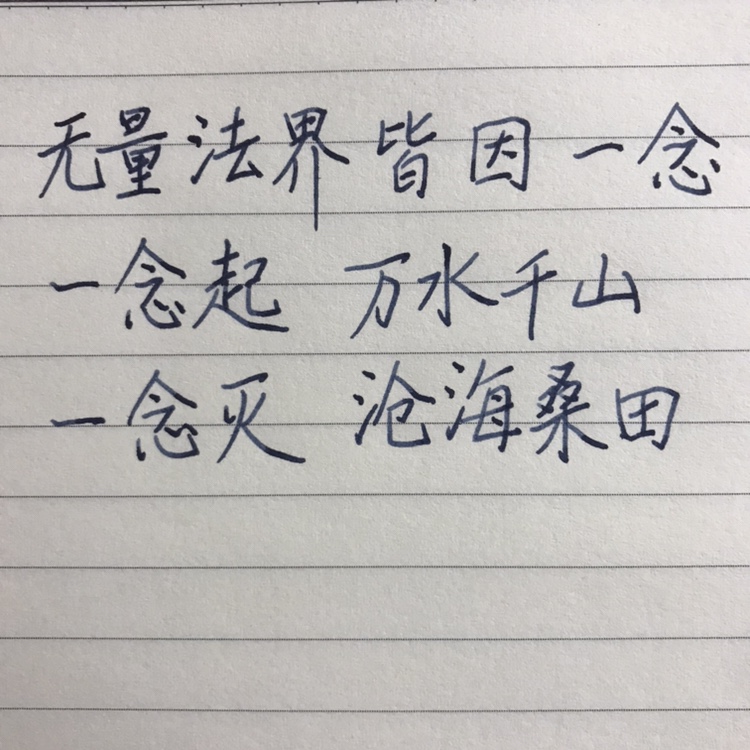 无量法界 皆因一念
一念起 万水千山
一念灭 沧海桑田